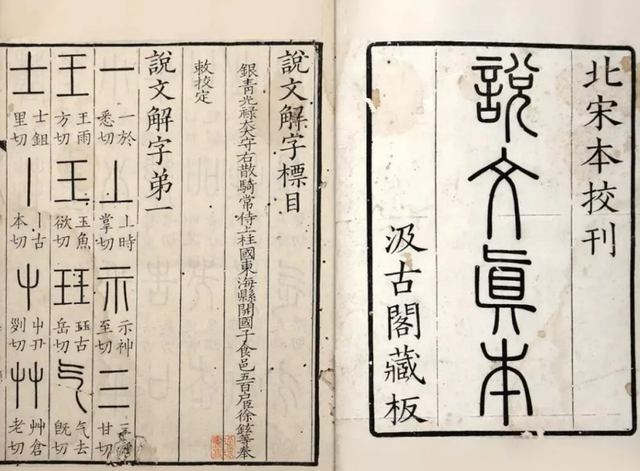 北宋本挍刊
說文眞本
汲古閣藏板
說文解字標目
銀青光祿大夫守右散騎常侍上柱國東海縣開國子食邑五百戶臣徐鉉等奉
敕挍定
說文解字弟一
一 一於悉切 丄 丄時掌切 示 示神至切 三 三甘切
王 王雨方切 玉 玉魚欲切 玨 玨古岳切 气 气去旣切
士 士鉏里切 丨 丨古本切 屮 屮丑切 艸 艸倉老切